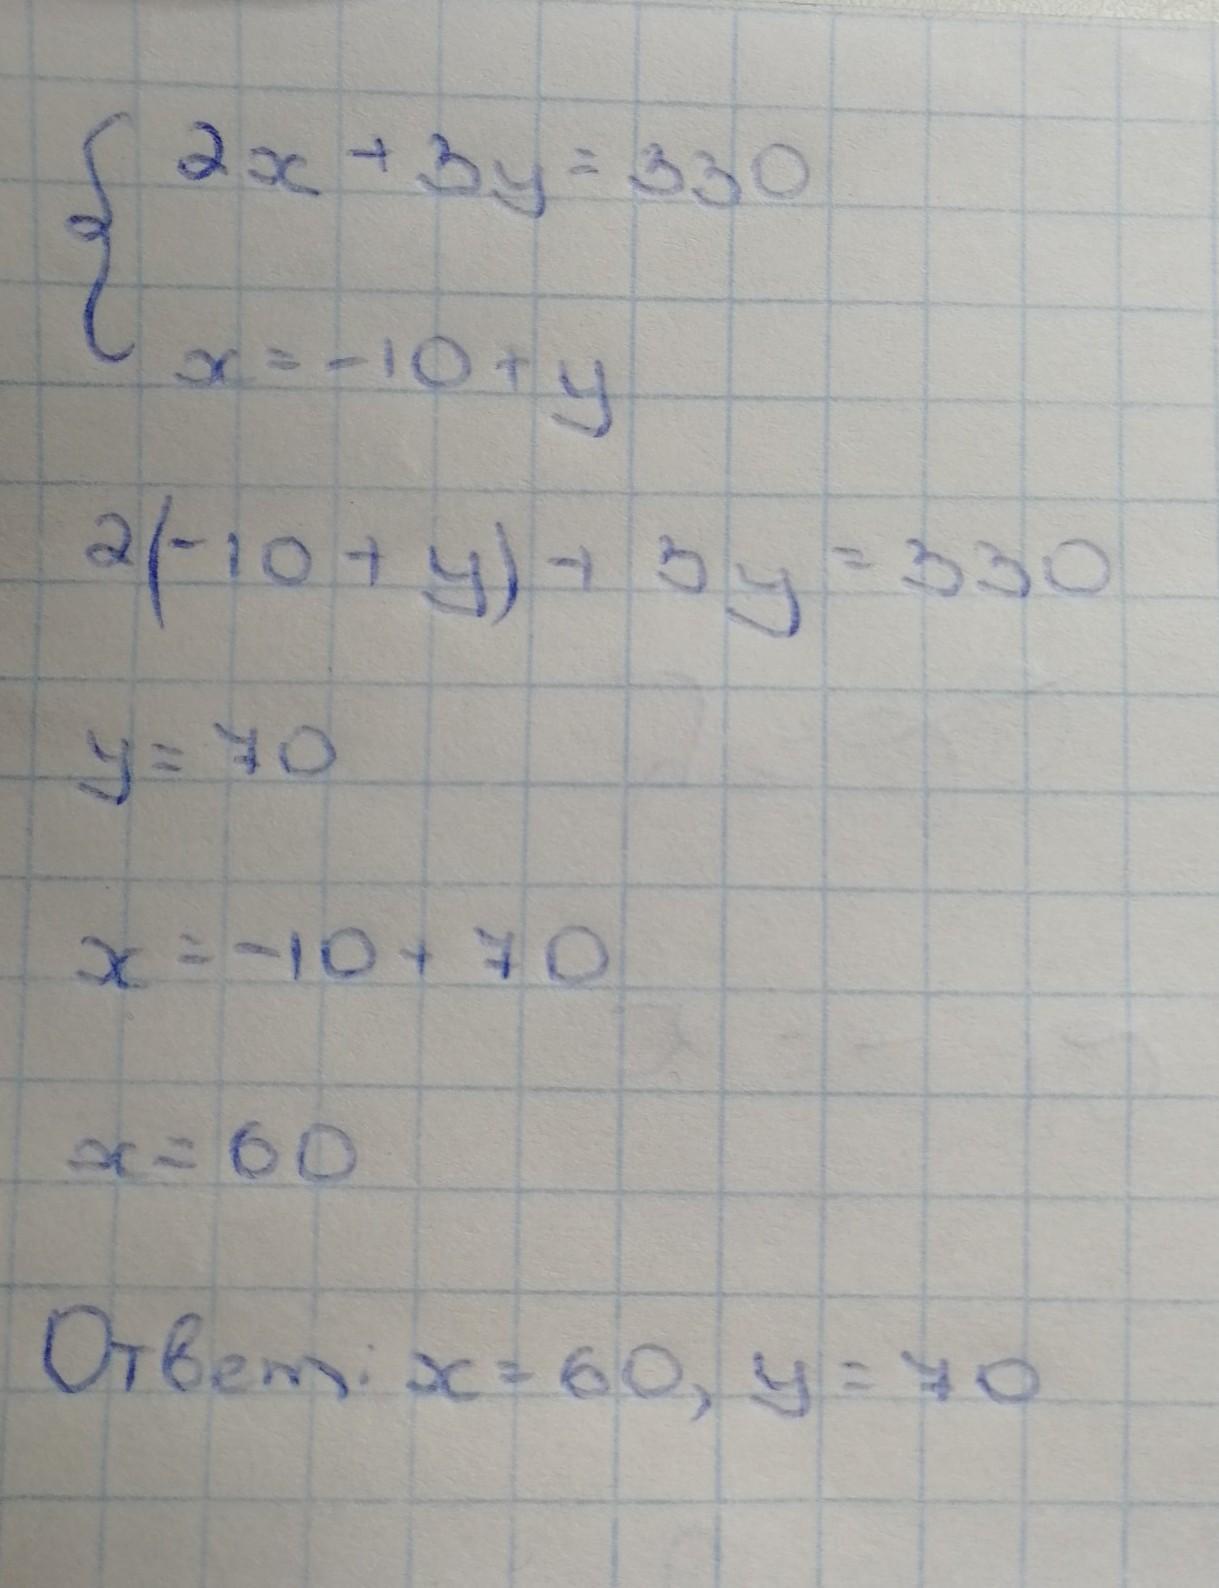 2x + 3y = 330
x = -10 + y
2(-10 + y) + 3y = 330
y = 70
x = -10 + 70
x = 60
Ответ: x = 60, y = 70